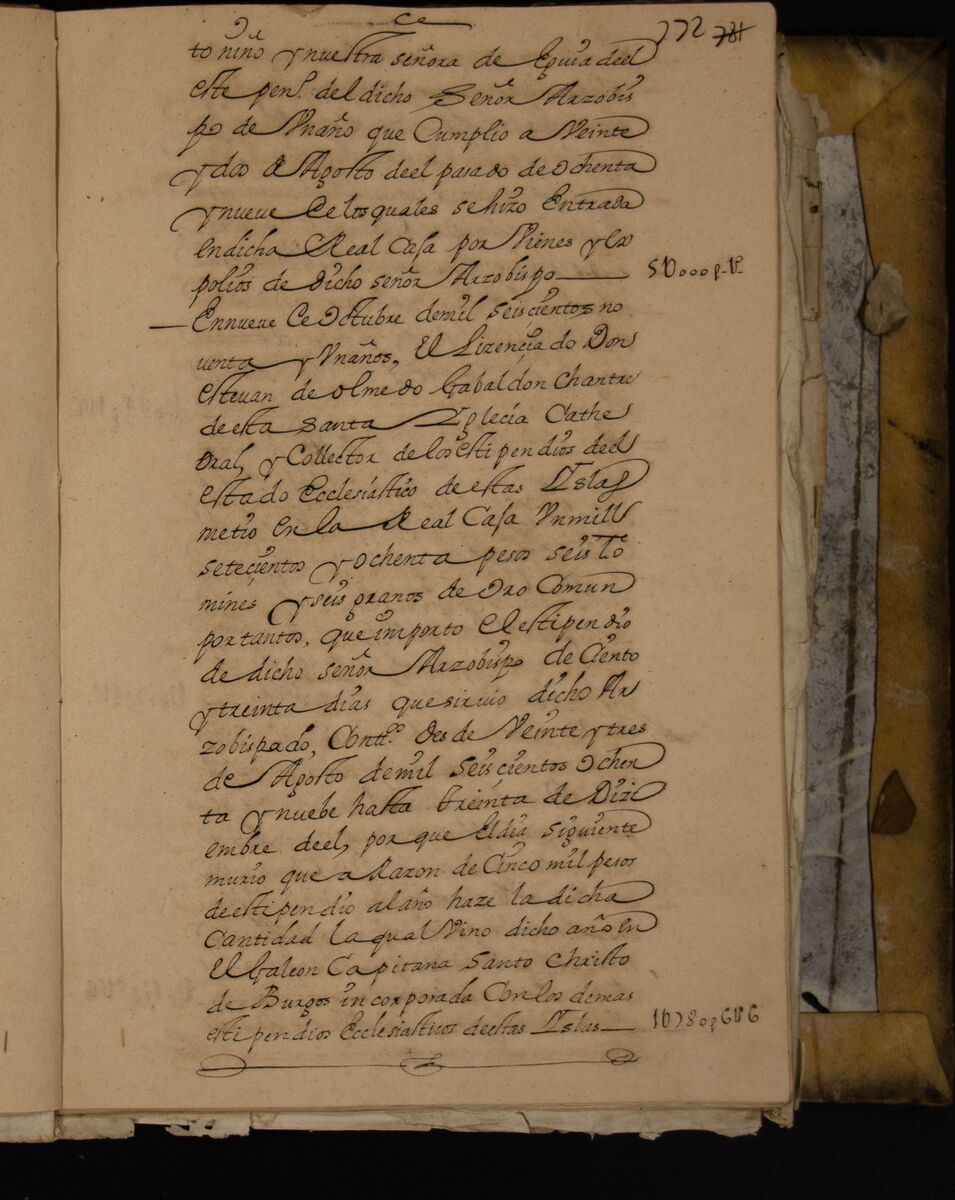 ce
772 781
to niño y nuestra señora de Eguia deel
este penᵒ. del dicho Señor Arzobis
po de Vnaño que Cumplio a Veinte
y dos de Agosto deel pasado de ochenta
y nueve De los quales se hizo Entrada
en dicha Real Casa por Vienes y ex
polios de Dicho señor Arzobispo — 5U000p-U-
En nueve De Octubre de mil seiscientos no
uenta y Vnaños, El Lizençiado Don
esteuan de olmedo Gabaldon Chantre
de esta Santa Yglecia Cathe
dral, y Collector de los estipendios deel
estado Ecclesiastico de estas Yslas
metio en la Real Casa Vnmill
setecientos y ochenta pesos seis to
mines y seis granos de Oro Comun
por tantos, que importo El estipendio
de dicho señor Arzobispo de Ciento
y treinta dias que siruio dicho Ar
zobispado, Contᵒˢ. desde Veinte y tres
de Agosto de mil seis cientos ochen
ta y nuebe hasta treinta de Dizi
embre deel, por que El dia siguiente
murio que a Razon de Cinco mil pesos
de estipendio al año haze la dicha
Cantidad la qual Vino dicho año En
El Galeon Capitana Santo Christo
de Burgos incorporada Con los demas
estipendios Ecclesiasticos deestas Yslas — 1U780p6U6